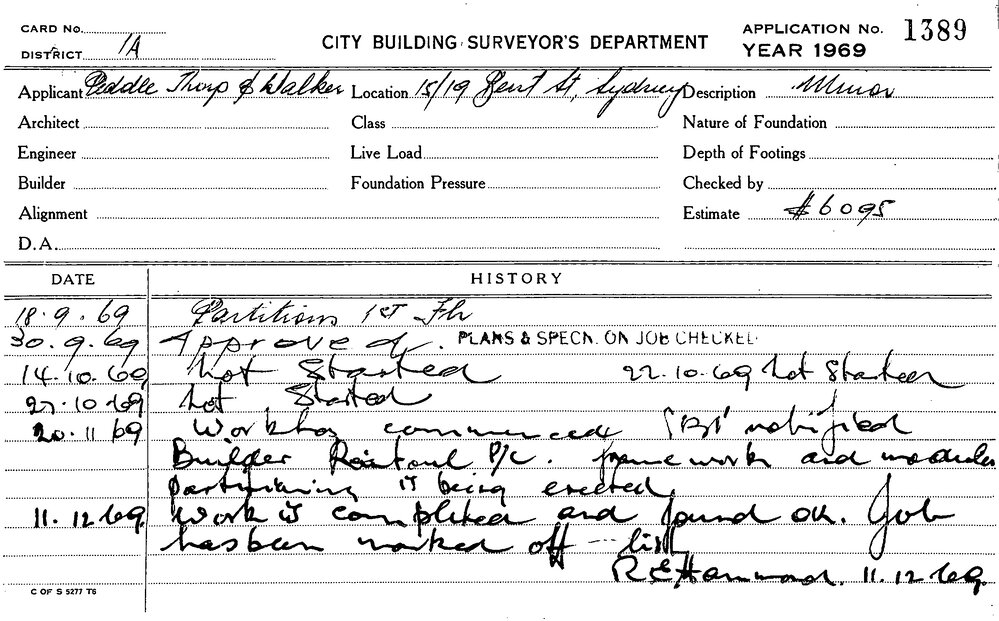 CARD No.
DISTRICT 1A
CITY BUILDING SURVEYOR'S DEPARTMENT
APPLICATION No. 1389
YEAR 1969
Applicant Peddle Thorp & Walker Location 15/19 Kent St, Sydney Description Minor
Architect Class Nature of Foundation
Engineer Live Load Depth of Footings
Builder Foundation Pressure Checked by
Alignment Estimate $6095
D.A.
DATE HISTORY
18.9.69 Partitions 1st Flr
30.9.69 Approved. PLANS & SPECN. ON JOB CHECKED
14.10.69 Not Started 22.10.69 Not Started
27.10.69 Not Started
20.11.69 Work has commenced 'B1' notified
Builder P/L. framework and
partitioning is being erected
11.12.69 Work is completed and found ok. Job
has been marked off list
R E Hammond. 11.12.69.
C OF S 5277 T6